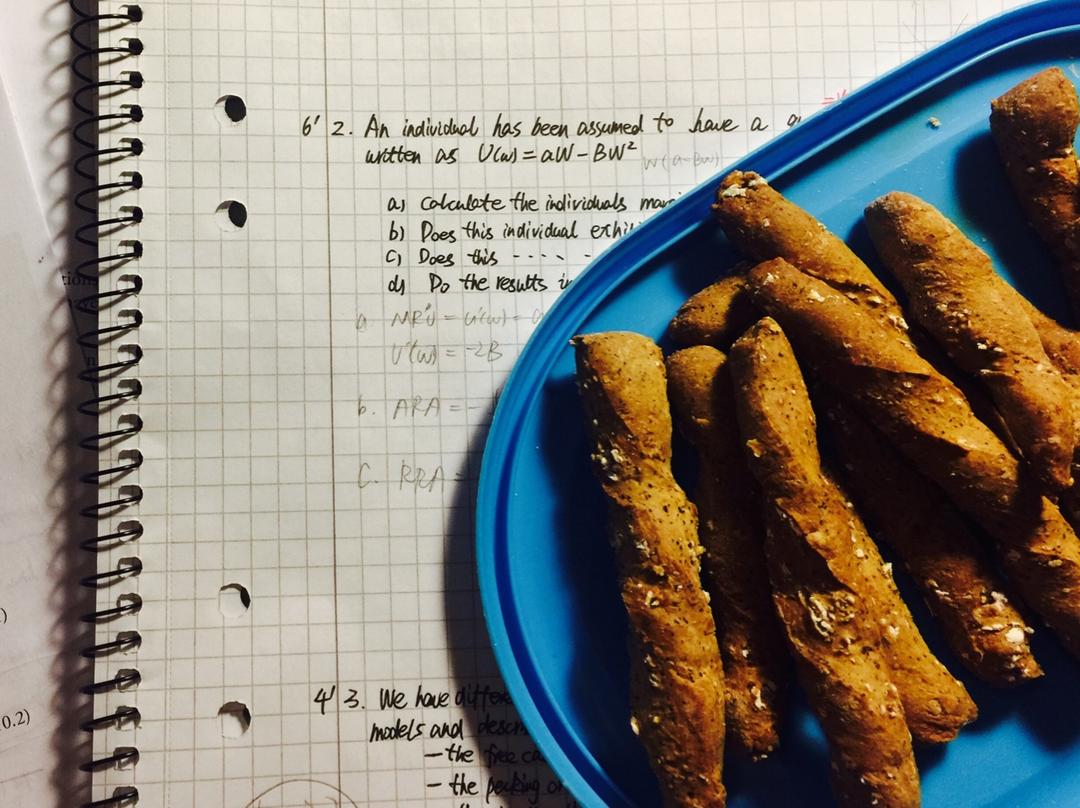 6' 2. An individual has been assumed to have a
written as U(w) = aW - BW² W(a-Bw)
a) calculate the individuals
b) Does this individual exhi
c) Does this - - - - -
d) Do the results
a MRU = U'(w) =
U''(w) = -2B
b. ARA = -
C. RRA =
4' 3. We have differe
models and descri
- the free ca
- the pecking or
tions
0.2)